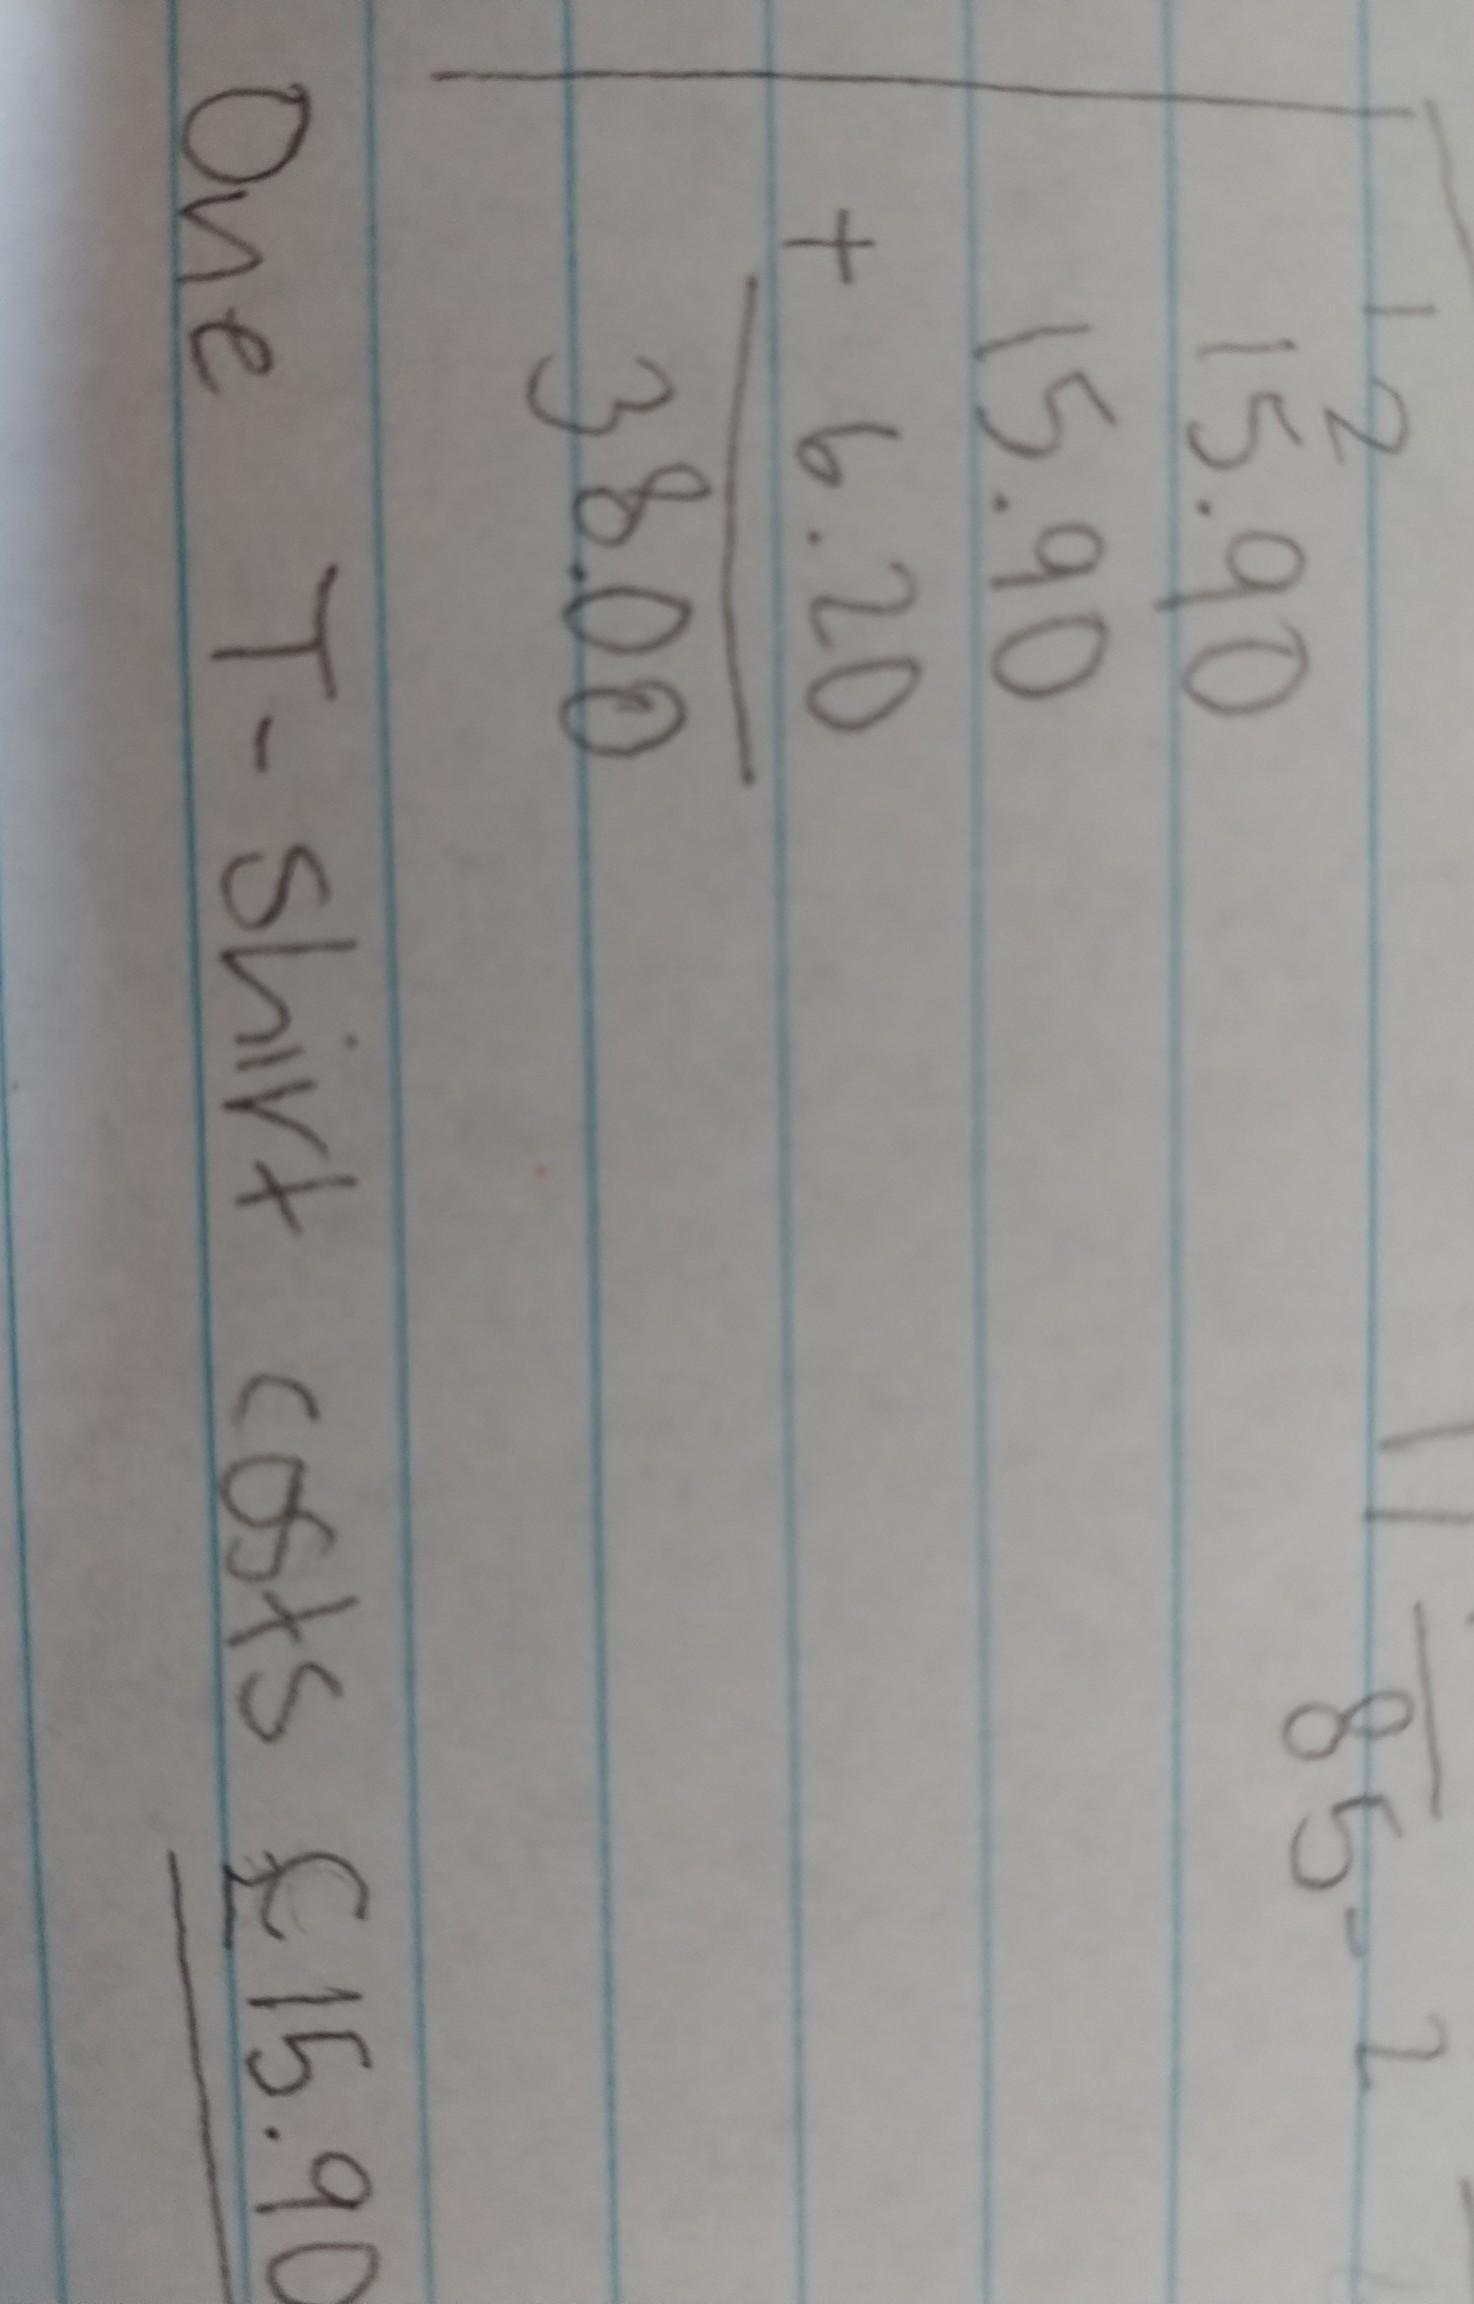 1 2
15.90
15.90
+ 6.20
38.00
85 - 2
One T-Shirt costs £15.90